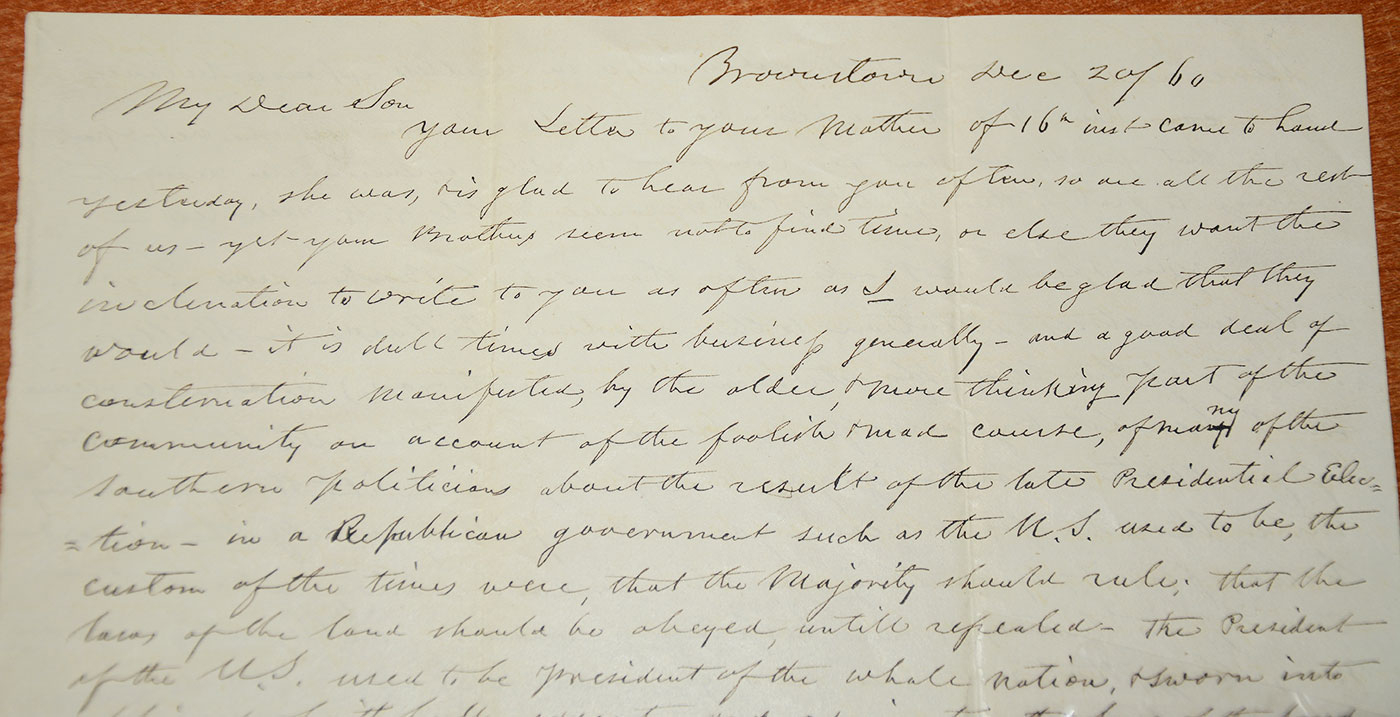 Brownstown Dec 20/60
My Dear Son
your Letter to your Mother of 16th inst came to hand
yesterday, she was, & is glad to hear from you often, so are all the rest
of us – yet your Brothers seem not to find time, or else they want the
inclination to write to you as often as I would be glad that they
would – it is dull times with business generally – and a good deal of
consternation manifested, by the older, & more thinking part of the
community on account of the foolish & mad course, of many of the
southern politicians about the result of the late Presidential Elec=
=tion – in a Republican government such as the U.S. used to be, the
custom of the times were, that the Majority should rule; that the
laws of the land should be obeyed, untill repealed – the President
of the U.S. used to be President of the whole nation, & sworn into